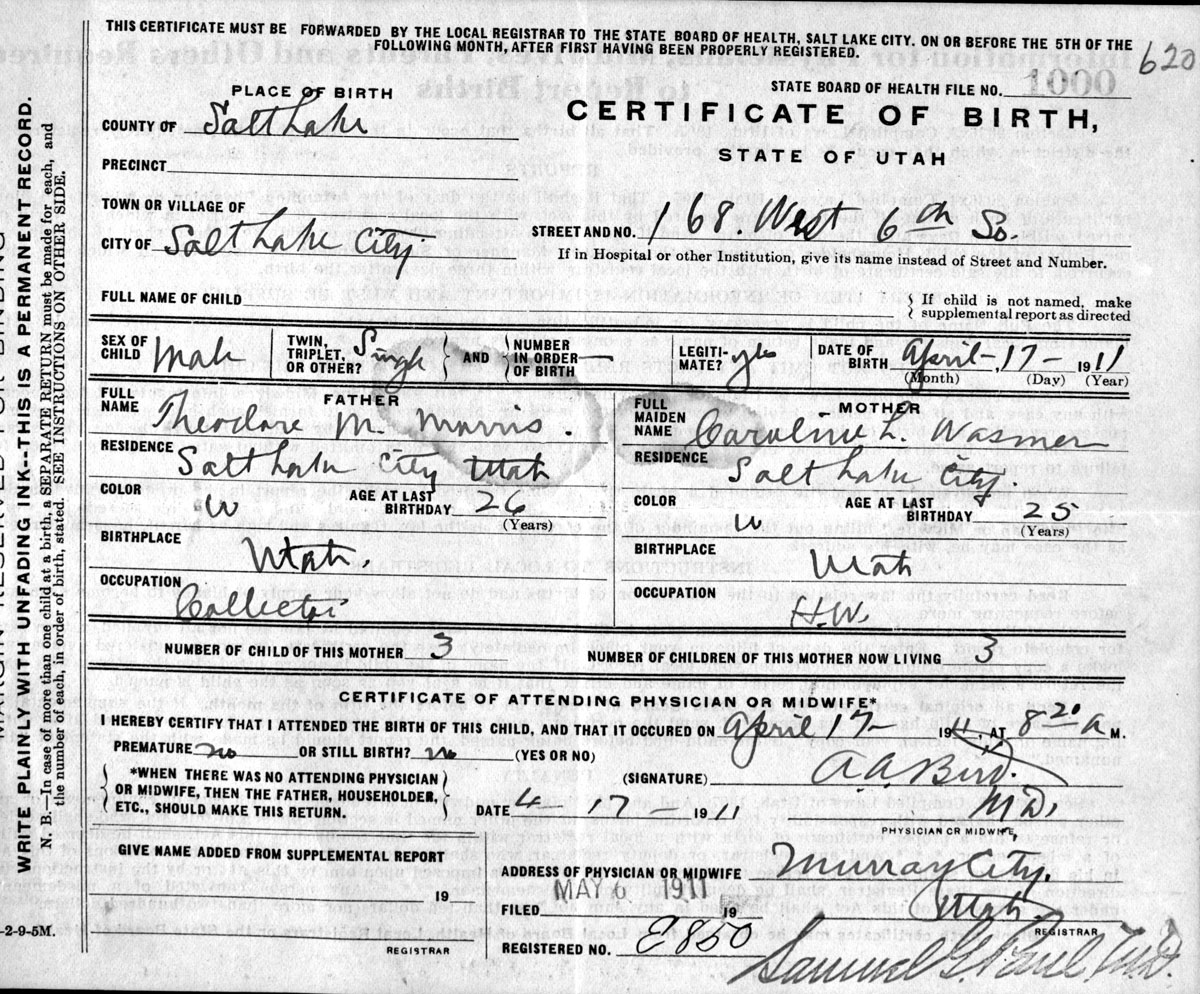 THIS CERTIFICATE MUST BE FORWARDED BY THE LOCAL REGISTRAR TO THE STATE BOARD OF HEALTH, SALT LAKE CITY, ON OR BEFORE THE 5TH OF THE
FOLLOWING MONTH, AFTER FIRST HAVING BEEN PROPERLY REGISTERED.
620
STATE BOARD OF HEALTH FILE NO. 1000
PLACE OF BIRTH
CERTIFICATE OF BIRTH,
STATE OF UTAH
COUNTY OF Salt Lake
PRECINCT
TOWN OR VILLAGE OF
CITY OF Salt Lake City
STREET AND NO. 168. West 6th So.
If in Hospital or other Institution, give its name instead of Street and Number.
FULL NAME OF CHILD
{ If child is not named, make
supplemental report as directed
SEX OF CHILD Male
TWIN, TRIPLET, OR OTHER? Single
AND { NUMBER IN ORDER OF BIRTH —
LEGITI-MATE? yes
DATE OF BIRTH April - 17 - 1911
(Month) (Day) (Year)
FATHER
FULL NAME Theodore M. Morris.
RESIDENCE Salt Lake City Utah
COLOR W
AGE AT LAST BIRTHDAY 26
(Years)
BIRTHPLACE Utah
OCCUPATION Collector
MOTHER
FULL MAIDEN NAME Caroline L. Wasmer
RESIDENCE Salt Lake City.
COLOR W
AGE AT LAST BIRTHDAY 25
(Years)
BIRTHPLACE Utah
OCCUPATION H.W.
NUMBER OF CHILD OF THIS MOTHER 3
NUMBER OF CHILDREN OF THIS MOTHER NOW LIVING 3
CERTIFICATE OF ATTENDING PHYSICIAN OR MIDWIFE*
I HEREBY CERTIFY THAT I ATTENDED THE BIRTH OF THIS CHILD, AND THAT IT OCCURED ON April 17 - 1911, AT 8 20 a M.
PREMATURE no OR STILL BIRTH? no (YES OR NO)
*WHEN THERE WAS NO ATTENDING PHYSICIAN
OR MIDWIFE, THEN THE FATHER, HOUSEHOLDER,
ETC., SHOULD MAKE THIS RETURN.
(SIGNATURE) A.A. Bird.
M.D.
DATE 4 - 17 - 1911
PHYSICIAN OR MIDWIFE,
GIVE NAME ADDED FROM SUPPLEMENTAL REPORT
19
REGISTRAR
ADDRESS OF PHYSICIAN OR MIDWIFE Murray City.
Utah
FILED MAY 6 1911 19
REGISTERED NO. E850
REGISTRAR
Samuel G. Paul, M.D.
WRITE PLAINLY WITH UNFADING INK--THIS IS A PERMANENT RECORD.
N. B.—In case of more than one child at a birth, a SEPARATE RETURN must be made for each, and
the number of each, in order of birth, stated. SEE INSTRUCTIONS ON OTHER SIDE.
-2-9-5M.